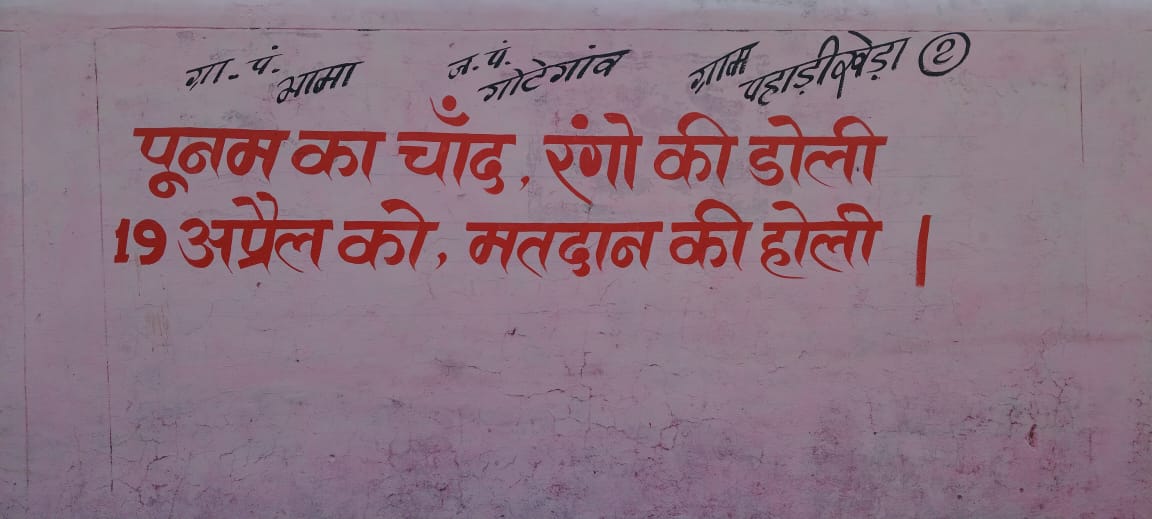 ग्रा. पं. भामा ज. पं. गोटेगांव ग्राम पहाड़ीखेड़ा 2
पूनम का चाँद, रंगो की डोली
19 अप्रैल को, मतदान की होली |